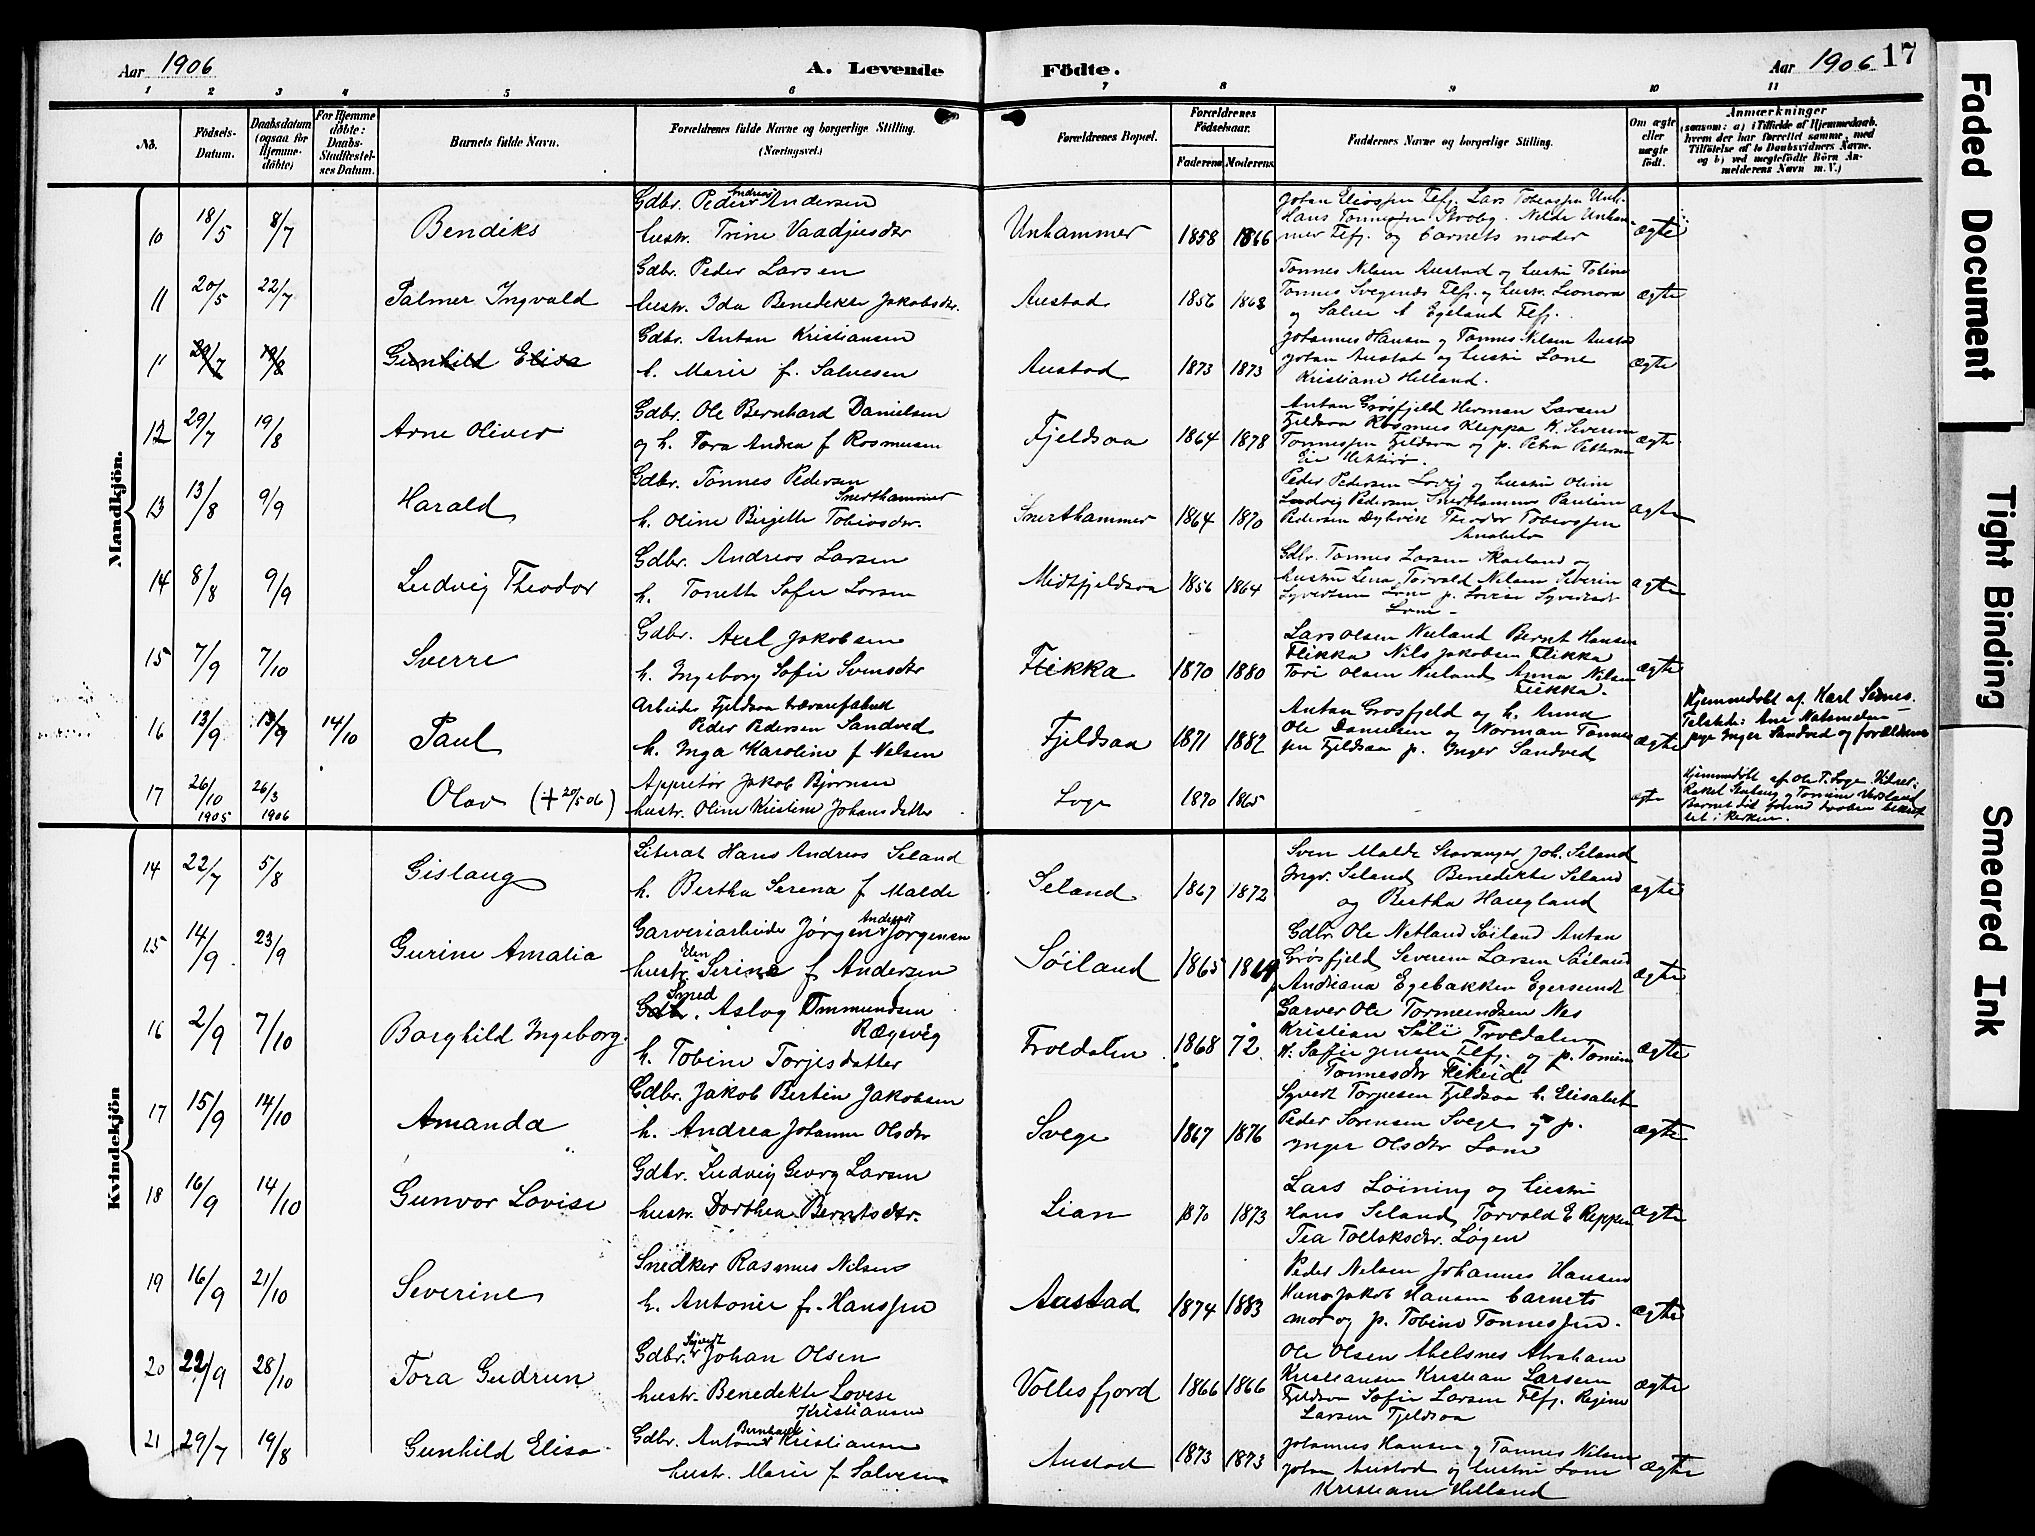 Aar 1906
A. Levende
Födte.
Aar 1906
17
1 2 3 4 5 6 7 8 9 10 11
No.
Födsels-Datum.
Daabsdatum (ogsaa för Hjemmedöbte)
For Hjemmedöbte: Daabs-Stadfæstelses Datum.
Barnets fulde Navn.
Forældrenes fulde Navne og borgerlige Stilling.
(Næringsvei.)
Forældrenes Bopæl.
Forældrenes Födselsaar.
Faderens Moderens
Faddernes Navne og borgerlige Stilling.
Om ægte eller uægte födt.
Anmærkninger
(saasom: a) i Tilfælde af Hjemmedaab, hvem der har forrettet samme, med Tilföielse af to Daabsvidners Navne, og b) ved uegtefödte Börn Anmelderens Navn m. V.)
Mandkjön.
10 18/5 8/7 Bendiks
Gdbr. Peder Andreas Andersen
hustr. Trine Vaadjusdtr
Unhammer 1858 1866
Johan Eliassen Flfj. Lars Tobiassen Unh.
Hans Tønnessen
mer Flfj. og barnets moder
ægte
11 20/5 22/7 Palmer Ingvald
Gdbr. Peder Larsen
hustr. Ida Benedekte Jakobsdtr.
Austad 1856 1863
Tønnes Nilsen Austad og hustru Tobine
Tønnes Svegends Flfj. og hustr. Leonora
og Salve A Egeland Flfj.
ægte
11 29/7 19/8 Gunhild Elisa
Gdbr. Anton Kristiansen
h. Marie f. Salvesen
Austad 1873 1873
Johannes Hansen og Tønnes Nilsen Austad
Johan Austad og hustru Lone
Kristiane Helland.
ægte
12 29/7 19/8 Arne Oliver
Gdbr. Ole Bernhard Danielsen
og h. Tora Andrea f Rasmussen
Fjeldsaa 1864 1878
Anton Grøsfjeld Herman Larsen
Fjeldsaa Rasmus Kleppa K. Severin
Tønnessen Fjeldsaa og p. Petra Pettersen
ægte
13 13/8 9/9 Harald
Gdbr. Tønnes Pedersen
Snerthammer
h. Oline Birgitte Tobiasdtr.
Snerthammer 1864 1870
Peder Pedersen Lovig og hustru Oline
Ludvig Pedersen Snerthammer Pauline
Pedersen Dybvik Theodor Tobiassen
ægte
14 8/8 9/9 Ludvig Theodor
Gdbr. Andreas Larsen
h. Tonette Sofie Larsen
Midtfjeldsaa 1856 1864
Gdbr. Tønnes Larsen Skailand og
hustru Lena Torvald Nilsen Severin
Syvertsen Lone p. Lovise Syvertsdtr
Lone
ægte
15 7/9 7/10 Sverre
Gdbr. Axel Jakobsen
h. Ingeborg Sofie Svensdtr
Flikka 1870 1880
Lars Olsen Nuland Bernt Hansen
Flikka Nils Jakobsen Flikka
Tori Olsen Nuland Anna Nilsen
Flikka.
ægte
16 13/9 13/9 14/10 Paul
Arbeider Fjeldsaa trævarefabrik
Peder Pedersen Sandved
h. Inga Karoline f Nelsen
Fjeldsaa 1871 1882
Anton Grøsfjeld og h. Anna
Ole Danielsen og Norman Tønnes
sen Fjeldsaa p. Inger Sandved
ægte
Hjemmedøbt af Karl Sidnes.
Tilstede: Ane
pige Inger Sandved og forældrene
17 26/10 1905 26/3 1906 Olav (+ 20/5 06)
Appretør Jakob Bjørnsen
hustr. Oline Kristine Johansdatter
Loge 1870 1865
ægte
Hjemmedøbt af Ole T. Loge. Vidner:
Rakel Stuberg og Tomine Vatsland
Barnet død forend daaben bekræf
tet i kirken.
Kvindekjön
14 22/7 5/8 Gislaug
Literat Hans Andreas Seland
h. Bertha Serena f Malde
Seland 1867 1872
Sven Malde Stavanger Joh. Seland
Ingv. Seland Benedikte Seland
og Bertha Haugland
ægte
15 14/9 23/9 Gurine Amalia
Garveriarbeider Jørgen Andreas Jørgensen
hustr. Elen Serine f Andersen
Søiland 1865 1869
Gdbr. Ole Netland Søiland Anton
Grøsfjeld Severin Larsen Søiland
Andreana Egebakken Egersund
ægte
16 2/9 7/10 Borghild Ingeborg
Gdb. Smed Aslag Ommundsen
Rægevig
h. Tobine Torjesdatter
Froedalen 1868 72.
Garver Ole Tormundsen Nes
Kristian Sili Troldalen
K. Sofie Jensen Flfj. og p. Tomine
Tønnesdtr Fikeid
ægte
17 15/9 14/10 Amanda
Gdbr. Jakob Bertin Jakobsen
h. Andrea Johanne Olsdtr
Svege 1867 1876
Syvert Torjesen Fjeldsaa h. Elisabet
Peder Sørensen Svege og p.
Inger Olsdtr Lone
ægte
18 16/9 14/10 Gunvor Lovise
Gdbr. Ludvig Georg Larsen
hustr. Dorthea Berntsdtr.
Lian 1870 1873
Lars Løining og hustru
Hans Seland, Torvald E Reppen
Tea Tollaksdtr. Løgen
ægte
19 16/9 21/10 Severine
Snedker Rasmus Nilsen
h. Antonie f. Hanssen
Austad 1874 1883
Peder Nelsen Johannes Hansen
Hans Jakob Hansen barnets
mor og p. Tobine Tønnessen.
ægte
20 22/9 28/10 Tora Gudrun
Gdbr. Syvert Johan Olsen
hustr. Benedekte Lovise
Kristiansen
Vollesfjord 1866 1866
Ole Olsen Abelsnes Abraham
Kristiansen Kristian Larsen
Fjeldsaa Sofie Larsen Flfj. Regine
Larsen Fjeldsaa
ægte
21 29/7 19/8 Gunhild Elisa
Gdbr. Anton Bernhard Kristiansen
hustr. Marie f Salvesen
Austad 1873 1873
Johannes Hansen og Tønnes Nilsen
Johan Austad og hustru Lone
Kristiane Helland
ægte
Faded Document
Tight Binding
Smeared Ink